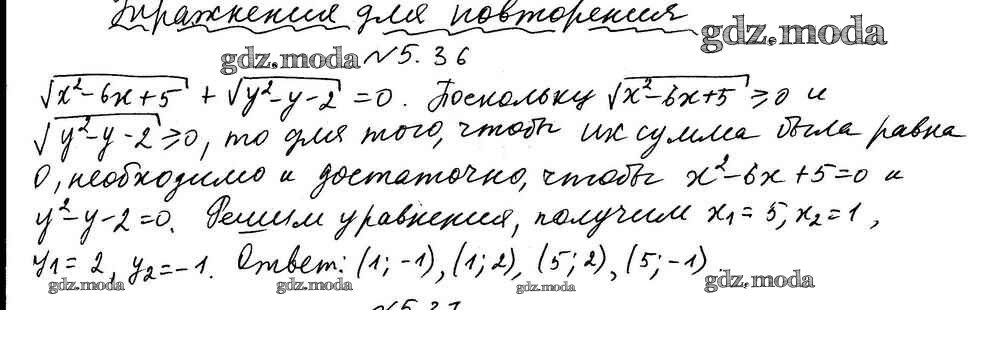 Упражнения для повторения
gdz.moda
gdz.moda
№5.36
√x²-6x+5 + √y²-y-2 = 0. Поскольку √x²-6x+5 ≥ 0 и
√y²-y-2 ≥ 0, то для того, чтобы их сумма была равна
0, необходимо и достаточно, чтобы x²-6x+5=0 и
y²-y-2=0. Решим уравнения, получим x₁=5, x₂=1,
y₁=2, y₂=-1. Ответ: (1;-1), (1;2), (5;2), (5;-1).
gdz.moda
gdz.moda
gdz.moda
gdz.moda